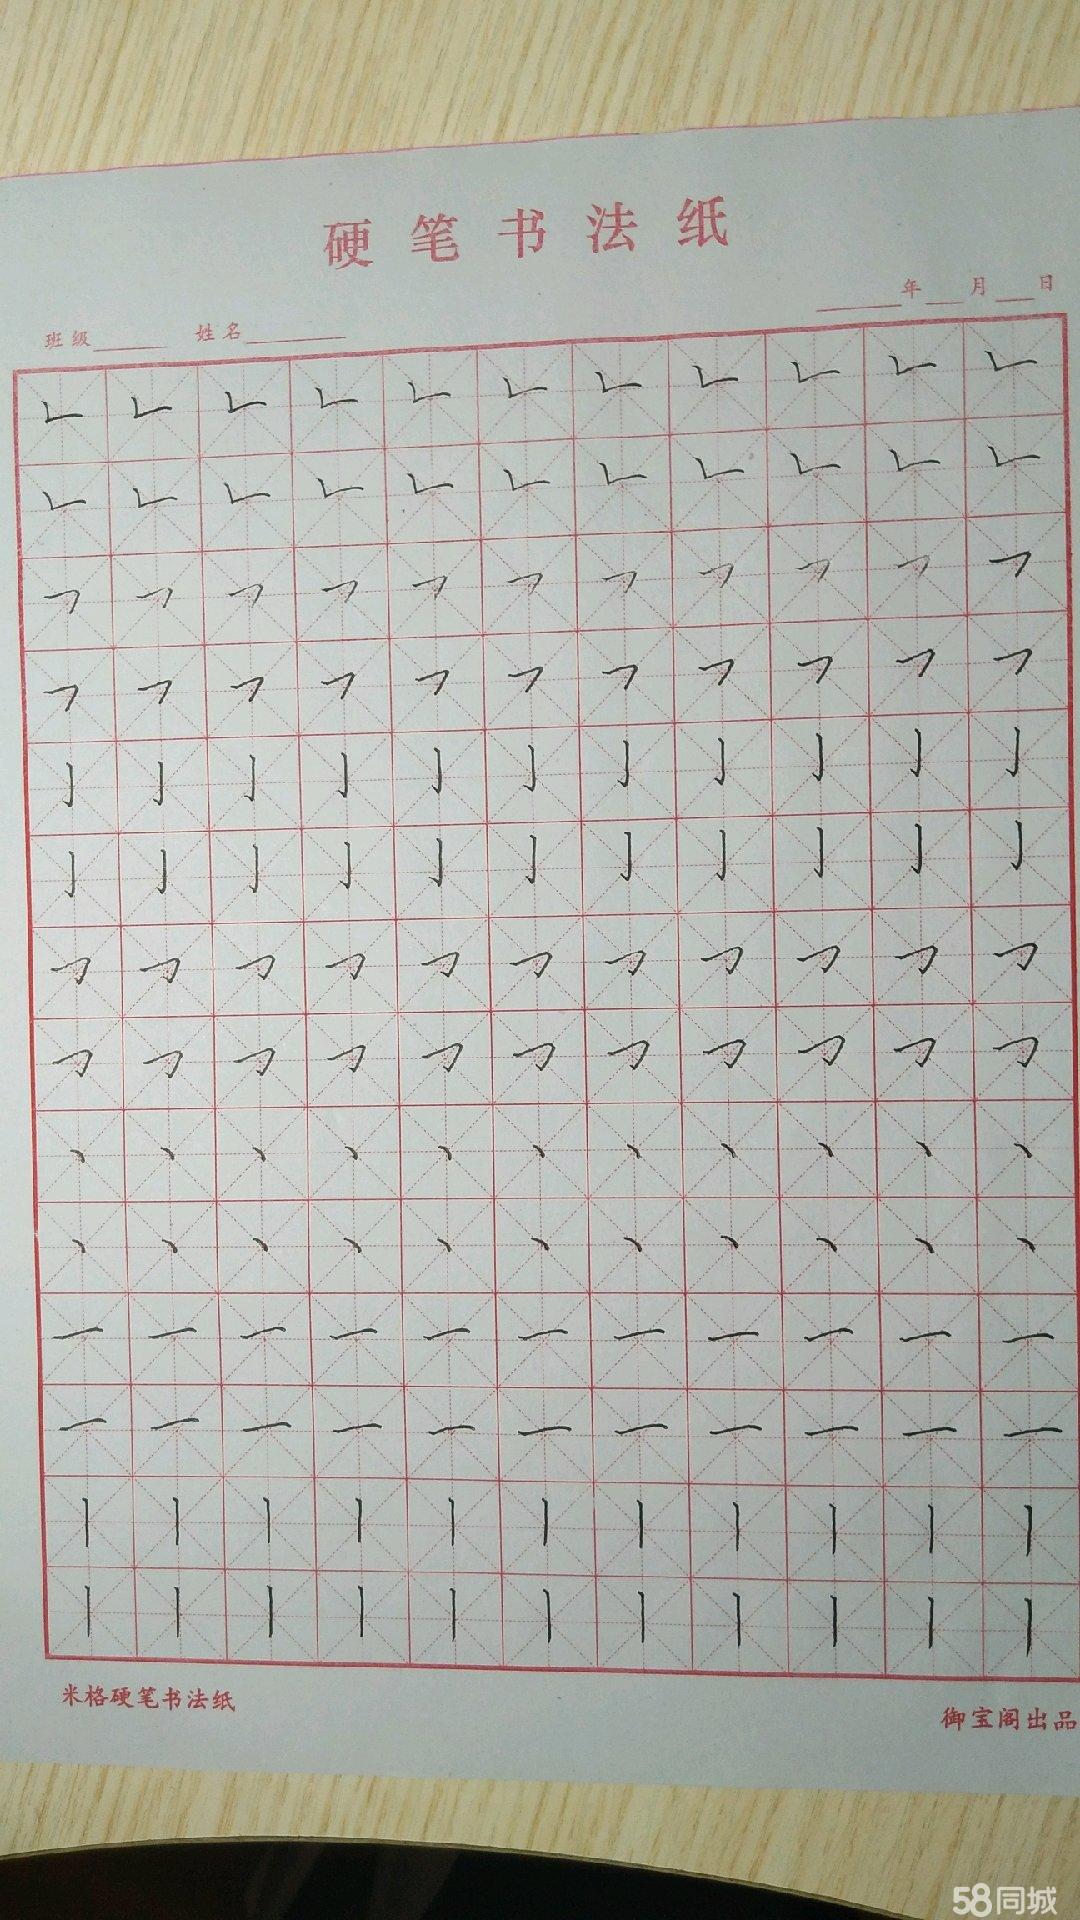 硬笔书法纸
年 月 日
班级 姓名
㇗ ㇗ ㇗ ㇗ ㇗ ㇗ ㇗ ㇗ ㇗ ㇗ ㇗
㇗ ㇗ ㇗ ㇗ ㇗ ㇗ ㇗ ㇗ ㇗ ㇗ ㇗
㇇ ㇇ ㇇ ㇇ ㇇ ㇇ ㇇ ㇇ ㇇ ㇇ ㇇
㇇ ㇇ ㇇ ㇇ ㇇ ㇇ ㇇ ㇇ ㇇ ㇇ ㇇
亅 亅 亅 亅 亅 亅 亅 亅 亅 亅 亅
亅 亅 亅 亅 亅 亅 亅 亅 亅 亅 亅
㇆ ㇆ ㇆ ㇆ ㇆ ㇆ ㇆ ㇆ ㇆ ㇆ ㇆
㇆ ㇆ ㇆ ㇆ ㇆ ㇆ ㇆ ㇆ ㇆ ㇆ ㇆
丶 丶 丶 丶 丶 丶 丶 丶 丶 丶 丶
丶 丶 丶 丶 丶 丶 丶 丶 丶 丶 丶
一 一 一 一 一 一 一 一 一 一 一
一 一 一 一 一 一 一 一 一 一 一
丨 丨 丨 丨 丨 丨 丨 丨 丨 丨 丨
丨 丨 丨 丨 丨 丨 丨 丨 丨 丨 丨
米格硬笔书法纸
御宝阁出品
58同城